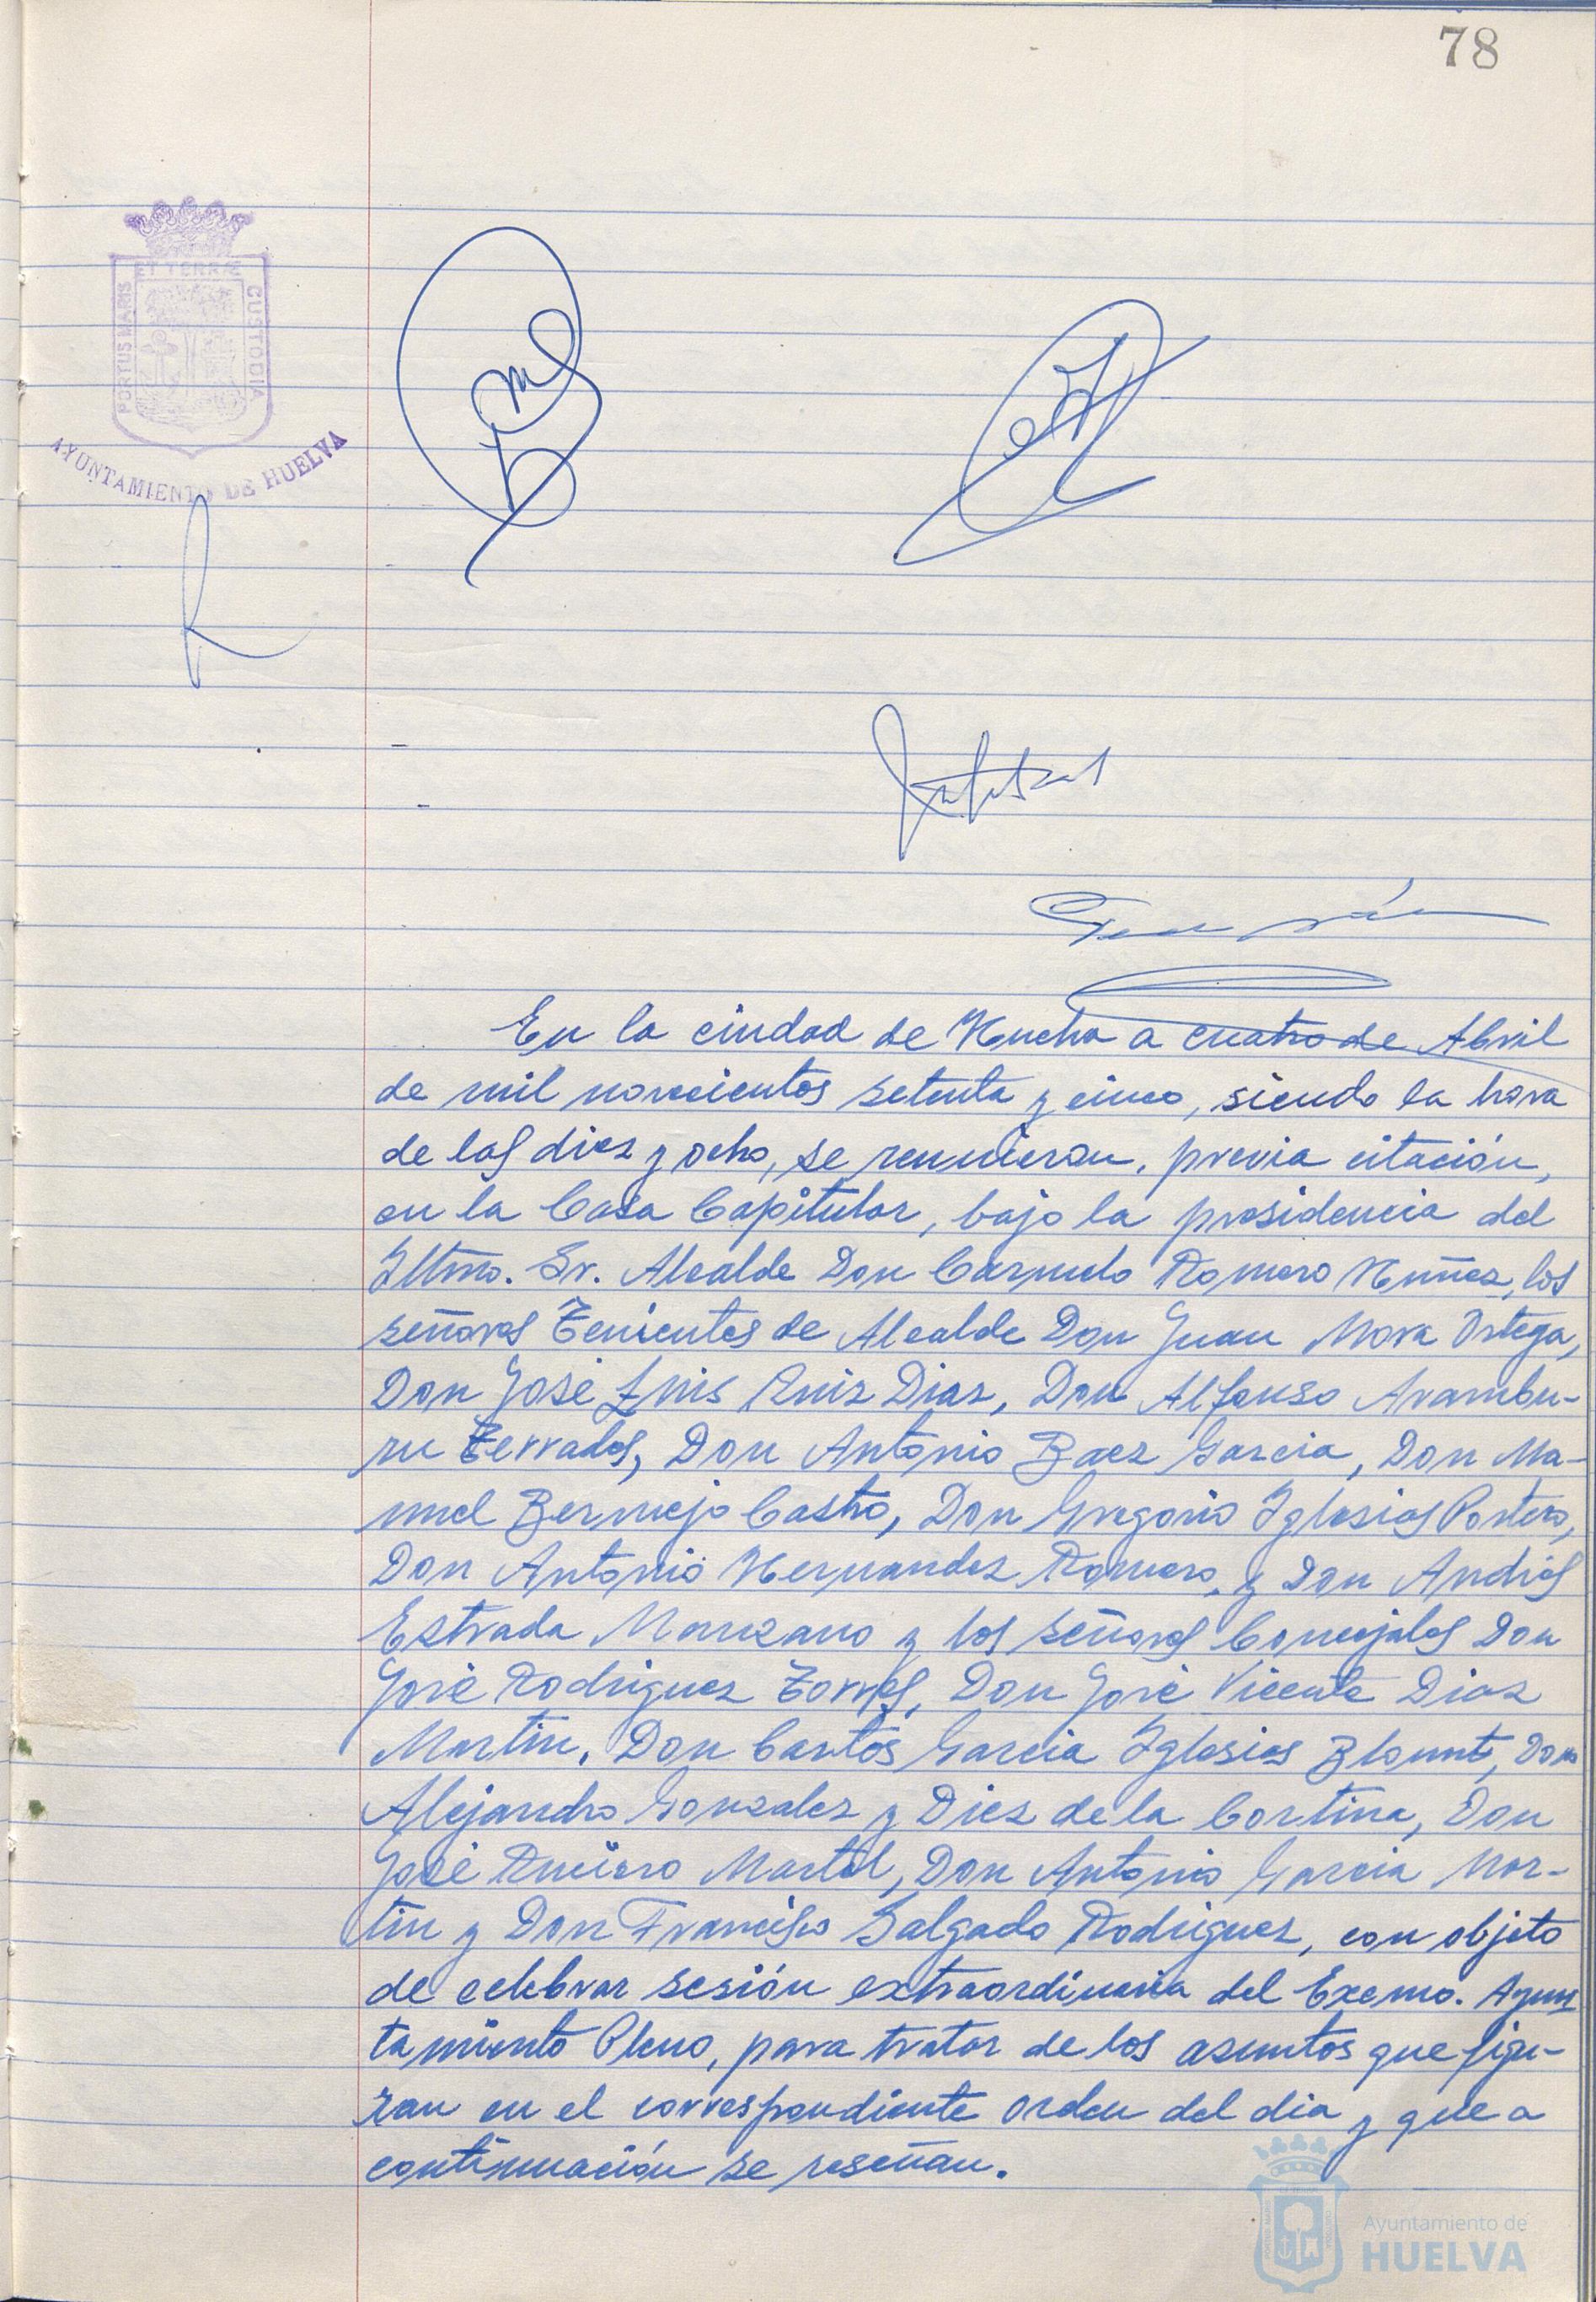 78
ET TERRÆ
PORTUS MARIS
CUSTODIA
AYUNTAMIENTO DE HUELVA
En la ciudad de Huelva a cuatro de Abril
de mil novecientos setenta y cinco, siendo la hora
de las diez y ocho, se reunieron, previa citación,
en la Casa Capitular, bajo la presidencia del
Iltmo. Sr. Alcalde Don Carmelo Romero Nuñez, los
señores Tenientes de Alcalde Don Juan Mora Ortega,
Don José Luis Ruiz Diaz, Don Alfonso Arambu-
ru Terrados, Don Antonio Baez Garcia, Don Ma-
nuel Bermejo Castro, Don Gregorio Iglesias Portero,
Don Antonio Hernandez Romero, y Don Andrés
Estrada Manzano y los señores Concejales Don
José Rodriguez Torres, Don José Vicente Diaz
Martin, Don Carlos Garcia Iglesias Blount, Don
Alejandro Gonzalez y Diez de la Cortina, Don
José Martel, Don Antonio Garcia Mar-
tin y Don Francisco Salgado Rodriguez, con objeto
de celebrar sesión extraordinaria del Excmo. Ayun
tamiento Pleno, para tratar de los asuntos que figu-
ran en el correspondiente orden del dia y que a
continuación se reseñan.
Ayuntamiento de
HUELVA